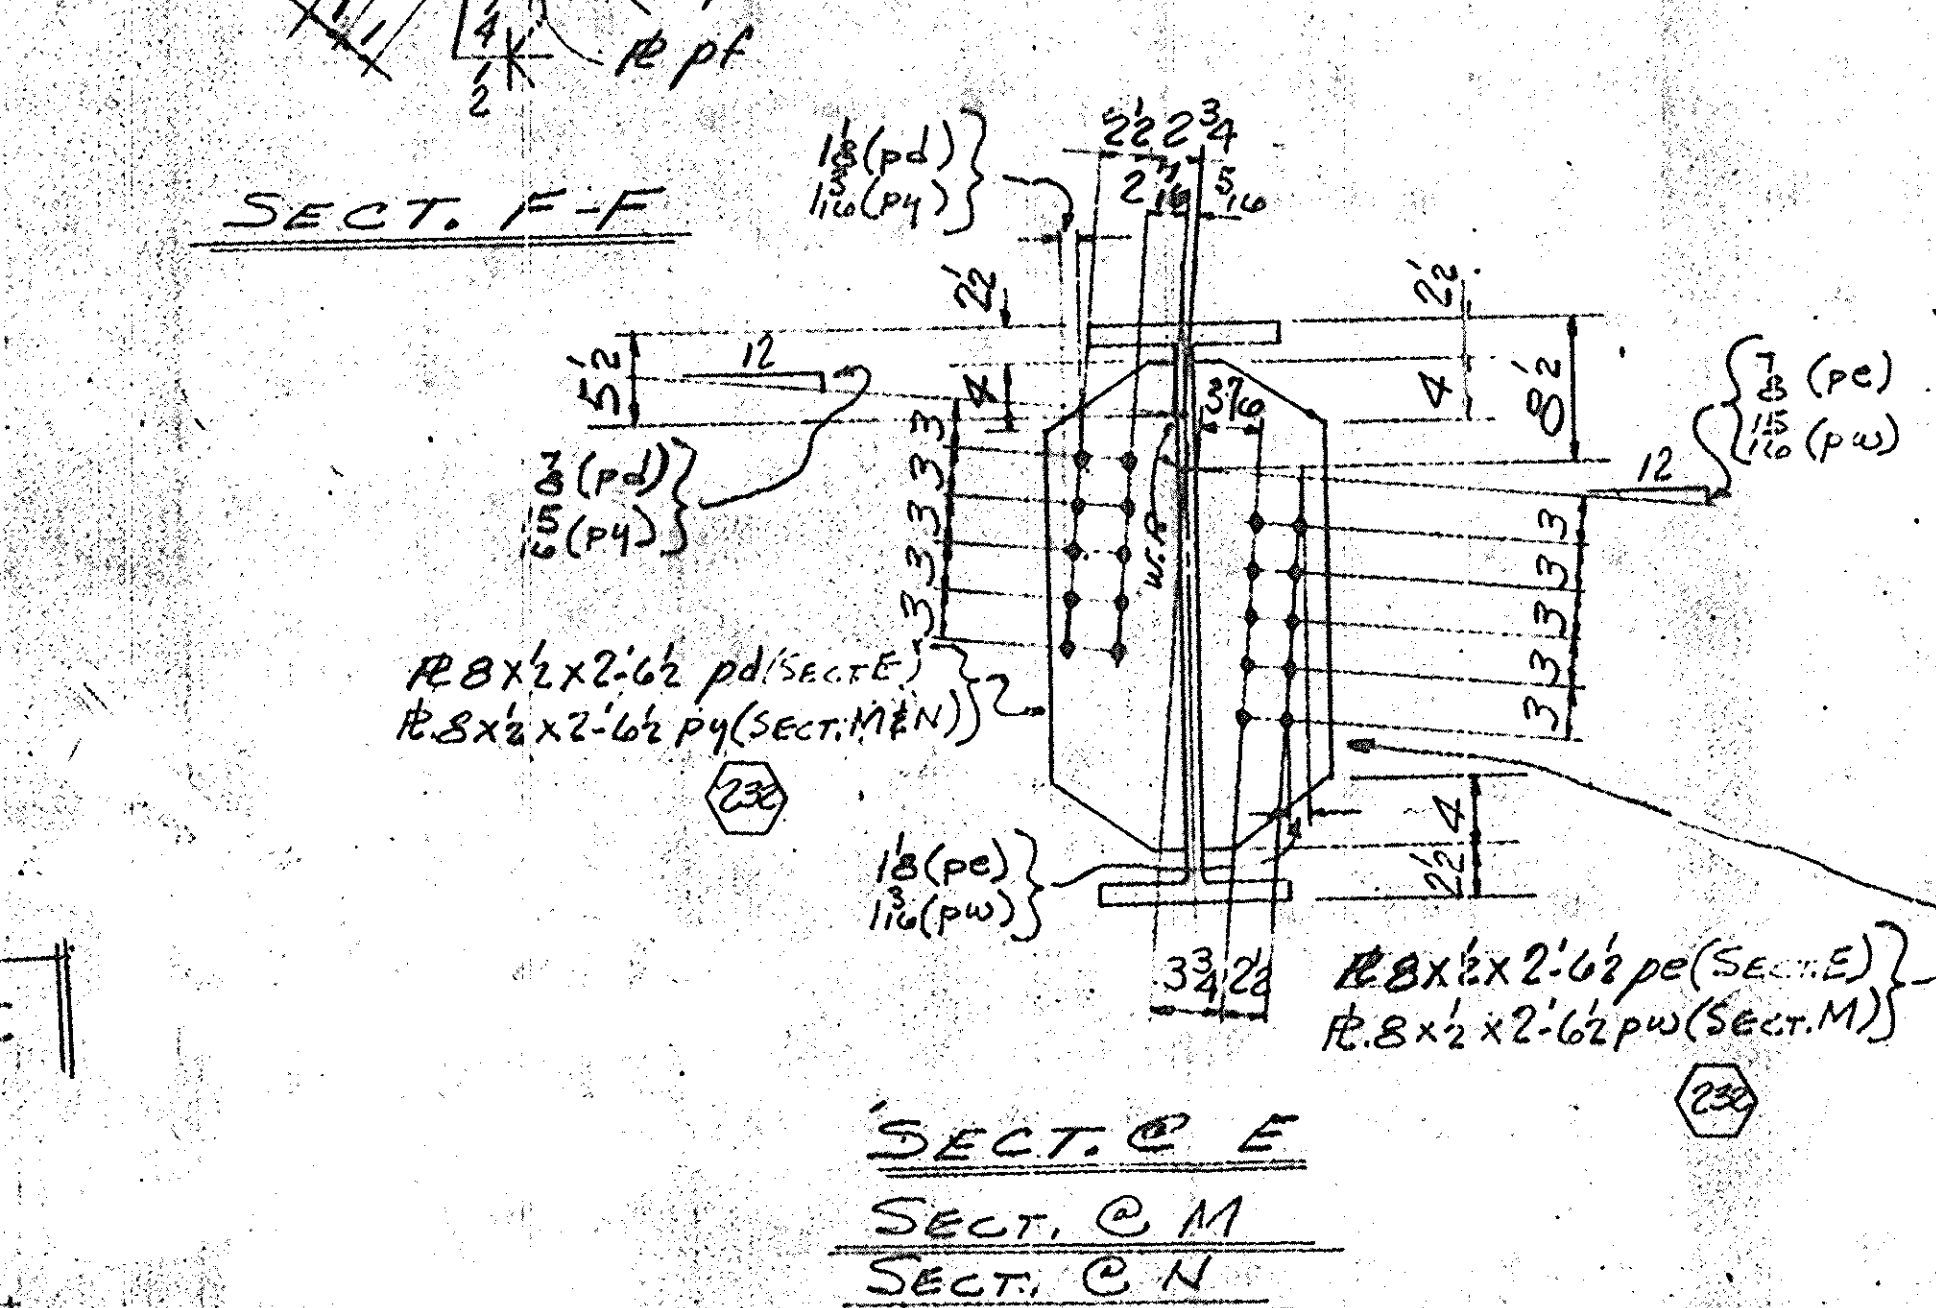 1/4
1/2
PL pf
SECT. F-F
1 1/8 (pd)
1 3/16 (py)
2 1/2 2 3/4
2 7/16 5/16
2 1/2
5 1/2
12
4
3 3 3 3 3
7/8 (pd)
15/16 (py)
3 7/16
W.P.
2 1/2
4
8 1/2
7/8 (pe)
15/16 (pw)
12
3 3 3 3 3
PL 8 x 1/2 x 2'-6 1/2 pd (SECT. E)
PL. 8 x 1/2 x 2'-6 1/2 py (SECT. M & N)
232
1 1/8 (pe)
1 3/16 (pw)
4
2 1/2
3 3/4 2 1/2
PL 8 x 1/2 x 2'-6 1/2 pe (SECT. E)
PL. 8 x 1/2 x 2'-6 1/2 pw (SECT. M)
232
SECT. @ E
SECT. @ M
SECT. @ N